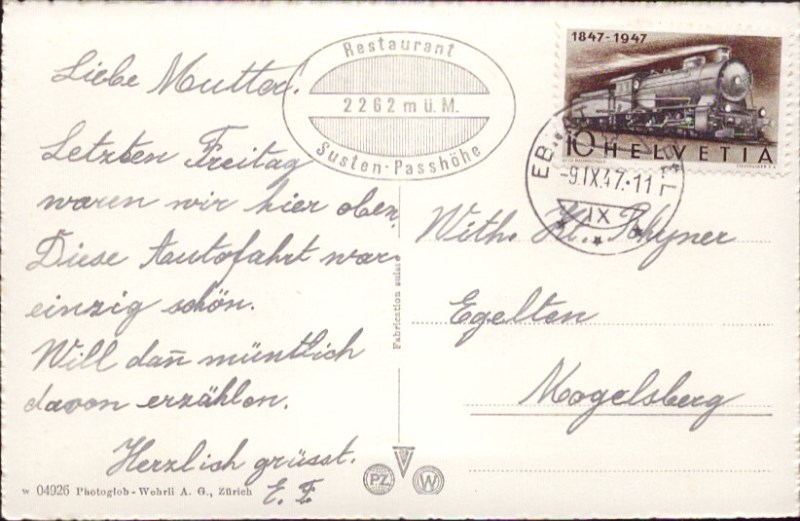 Restaurant
2262 m ü. M.
Susten-Passhöhe
1847-1947
10 HELVETIA
-9.IX.47.-11
IX
Liebe Mutter!
Letzten Freitag
waren wir hier oben,
Diese Autofahrt war
einzig schön.
Will dan̄ müntlich
davon erzählen.
Herzlich grüsst.
E. E.
Egelten
Mogelsberg
Fabrication suisse
PZ
W
w 04926 Photoglob-Wehrli A. G., Zürich